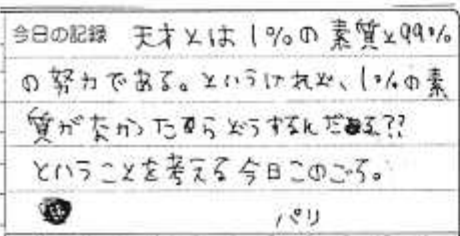 今日の記録 天才とは1%の素質と99%
の努力である。というけれど、1%の素
質がなかったらどうするんだろ??
ということを考える今日このごろ。
パリ